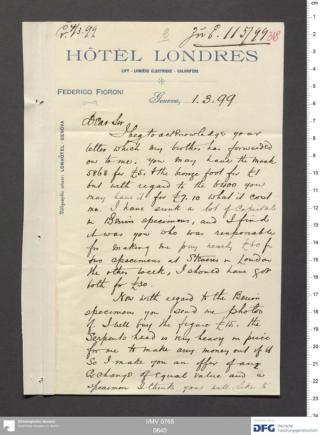 Pr. 4/3.99
Jn E. 115/99
HÔTEL LONDRES
LIFT - LUMIÈRE ELECTRIQUE - CALORIFÈRE
FEDERICO FIORONI
Genova, 1.3.99
Dear Sir
I beg to acknowledge your
letter which my brother has forwarded
on to me. You may have the mask
5868 for £5. & the bronze foot for £1
but with regard to the 6400 you
may have it for £7.10 what it cost
me. I have sunk a lot of Capital
in Benin specimens, and I find
it was you who was responsible
for making me pay nearly £60 for
two specimens at Stevens in London
the other week, I should have got
both for £30.
Now with regard to the Benin
specimens you send me photos
of I will buy the figure £15. the
Serpents head is very heavy in price
for me to make any money out of it
So I make you an offer of any
exchange of equal value and a
specimen I think you will like to
Télégraphic adresse: LONHÔTEL - GENOVA
IIMV 0765
0640
DFG
Deutsche
Forschungsgemeinschaft